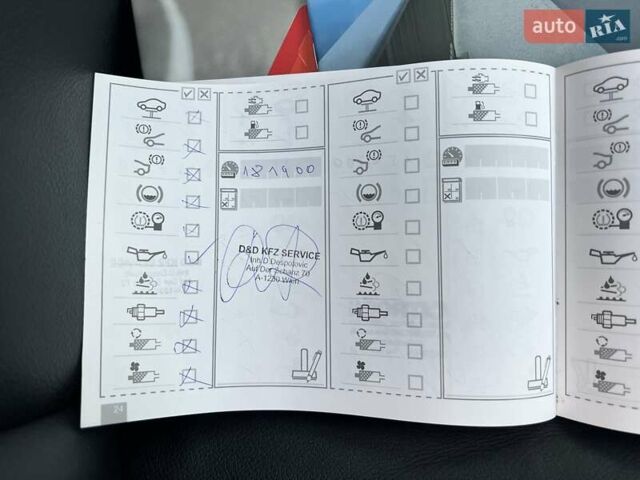 auto RIA
.com
181900
D&D KFZ SERVICE
Inh.D Despotovic
Auf Der Schanz 70
A-1230 Wien
24